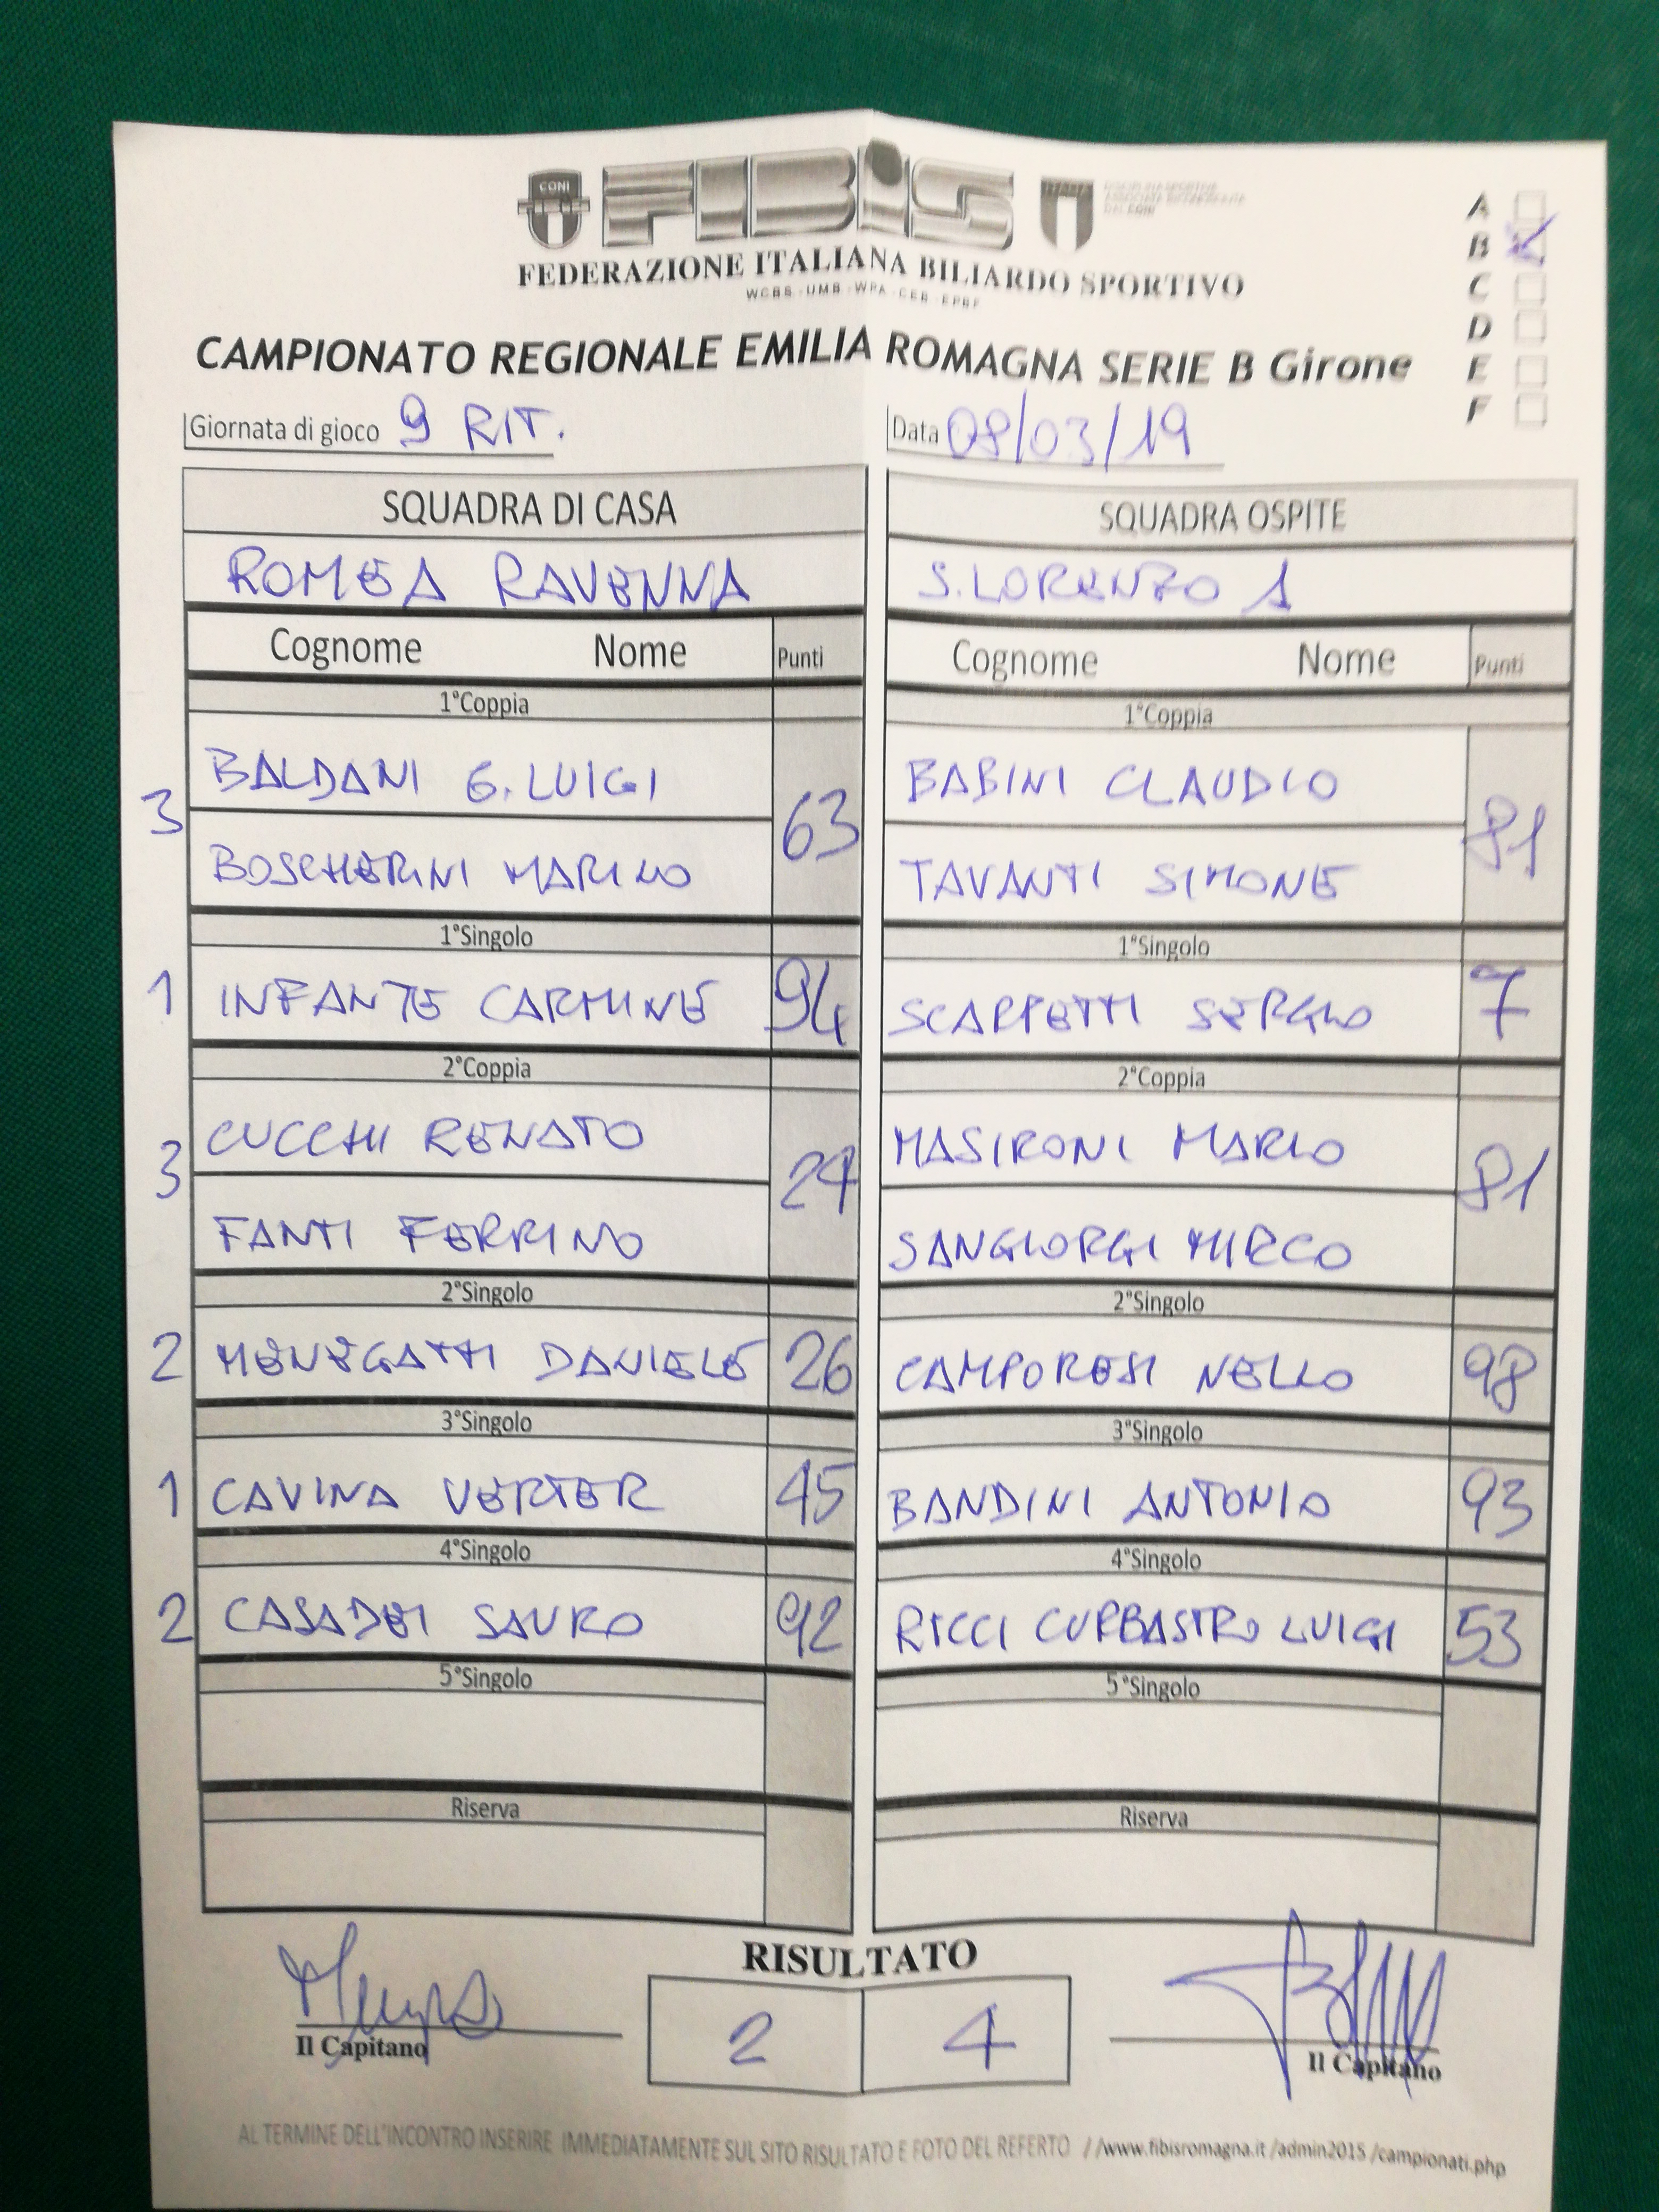 CONI
FIBiS
FEDERAZIONE ITALIANA BILIARDO SPORTIVO
WCBS - UMB - WPA - CEB - EPBF
A
B
C
D
E
F
CAMPIONATO REGIONALE EMILIA ROMAGNA SERIE B Girone
Giornata di gioco 9 RIT.
Data 08/03/19
SQUADRA DI CASA
SQUADRA OSPITE
ROMEA RAVENNA
S.LORENZO 1
Cognome Nome Punti
Cognome Nome Punti
1°Coppia
1°Coppia
3 BALDANI G.LUIGI 63
BOSCHERINI MARINO
BABINI CLAUDIO 81
TAVANTI SIMONE
1°Singolo
1°Singolo
1 INFANTE CARMINE 94
SCARPETTI SERGIO 7
2°Coppia
2°Coppia
3 CUCCHI RENATO 24
FANTI FERRINO
MASIRONI MARIO 81
SANGIORGI MIRCO
2°Singolo
2°Singolo
2 MENEGATTI DANIELE 26
CAMPORESI NELLO 98
3°Singolo
3°Singolo
1 CAVINA VERTER 45
BANDINI ANTONIO 93
4°Singolo
4°Singolo
2 CASADEI SAURO 92
RICCI CURBASTRO LUIGI 53
5°Singolo
5°Singolo
Riserva
Riserva
RISULTATO
2 4
Il Capitano
Il Capitano
AL TERMINE DELL'INCONTRO INSERIRE IMMEDIATAMENTE SUL SITO RISULTATO E FOTO DEL REFERTO //www.fibisromagna.it /admin2015 /campionati.php